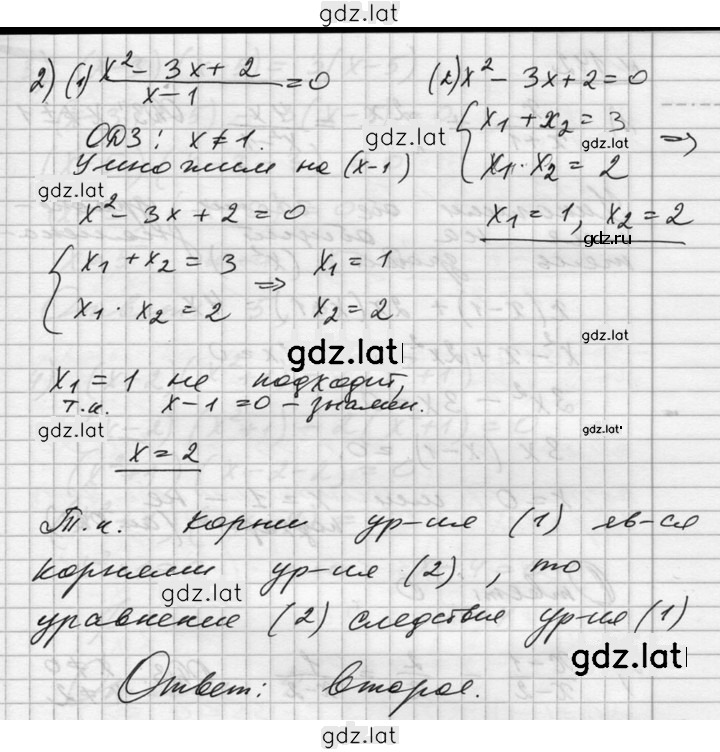 gdz.lat
2) (1) x² - 3x + 2 / x - 1 = 0
ОДЗ: x ≠ 1.
Умножим на (x-1)
gdz.lat
x² - 3x + 2 = 0
{ x₁ + x₂ = 3
x₁ · x₂ = 2
=> x₁ = 1
x₂ = 2
(2) x² - 3x + 2 = 0
gdz.lat
{ x₁ + x₂ = 3
gdz.lat
x₁ · x₂ = 2
=>
x₁ = 1, x₂ = 2
gdz.ru
gdz.lat
gdz.lat
x₁ = 1 не подходит,
т.к. x - 1 = 0 - знамен.
gdz.lat
gdz.lat
x = 2
Т.к. корни ур-ия (1) яв-ся
корнями ур-ия (2), то
gdz.lat
уравнение (2) следствия ур-ия (1)
gdz.lat
Ответ: второе.
gdz.lat